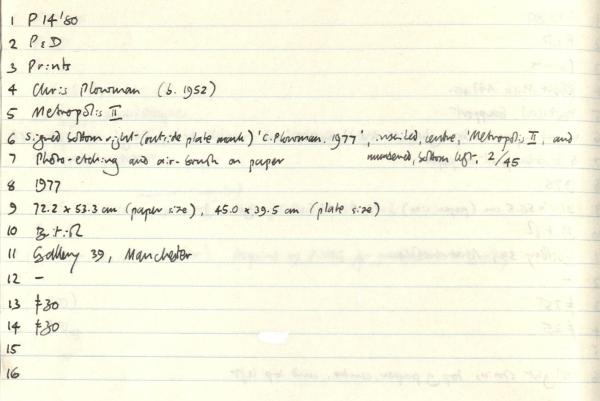 1 P14'80
2 P&D
3 Prints
4 Chris Plowman (b. 1952)
5 Metropolis II
6 signed bottom right (outside plate mark) 'C. Plowman. 1977', inscribed, centre, 'Metropolis II, and
numbered, bottom left, 2/45
7 Photo-etching and air-brush on paper
8 1977
9 72.2 x 53.3 cm (paper size), 45.0 x 39.5 cm (plate size)
10 British
11 Gallery 39, Manchester
12 -
13 £30
14 £30
15
16